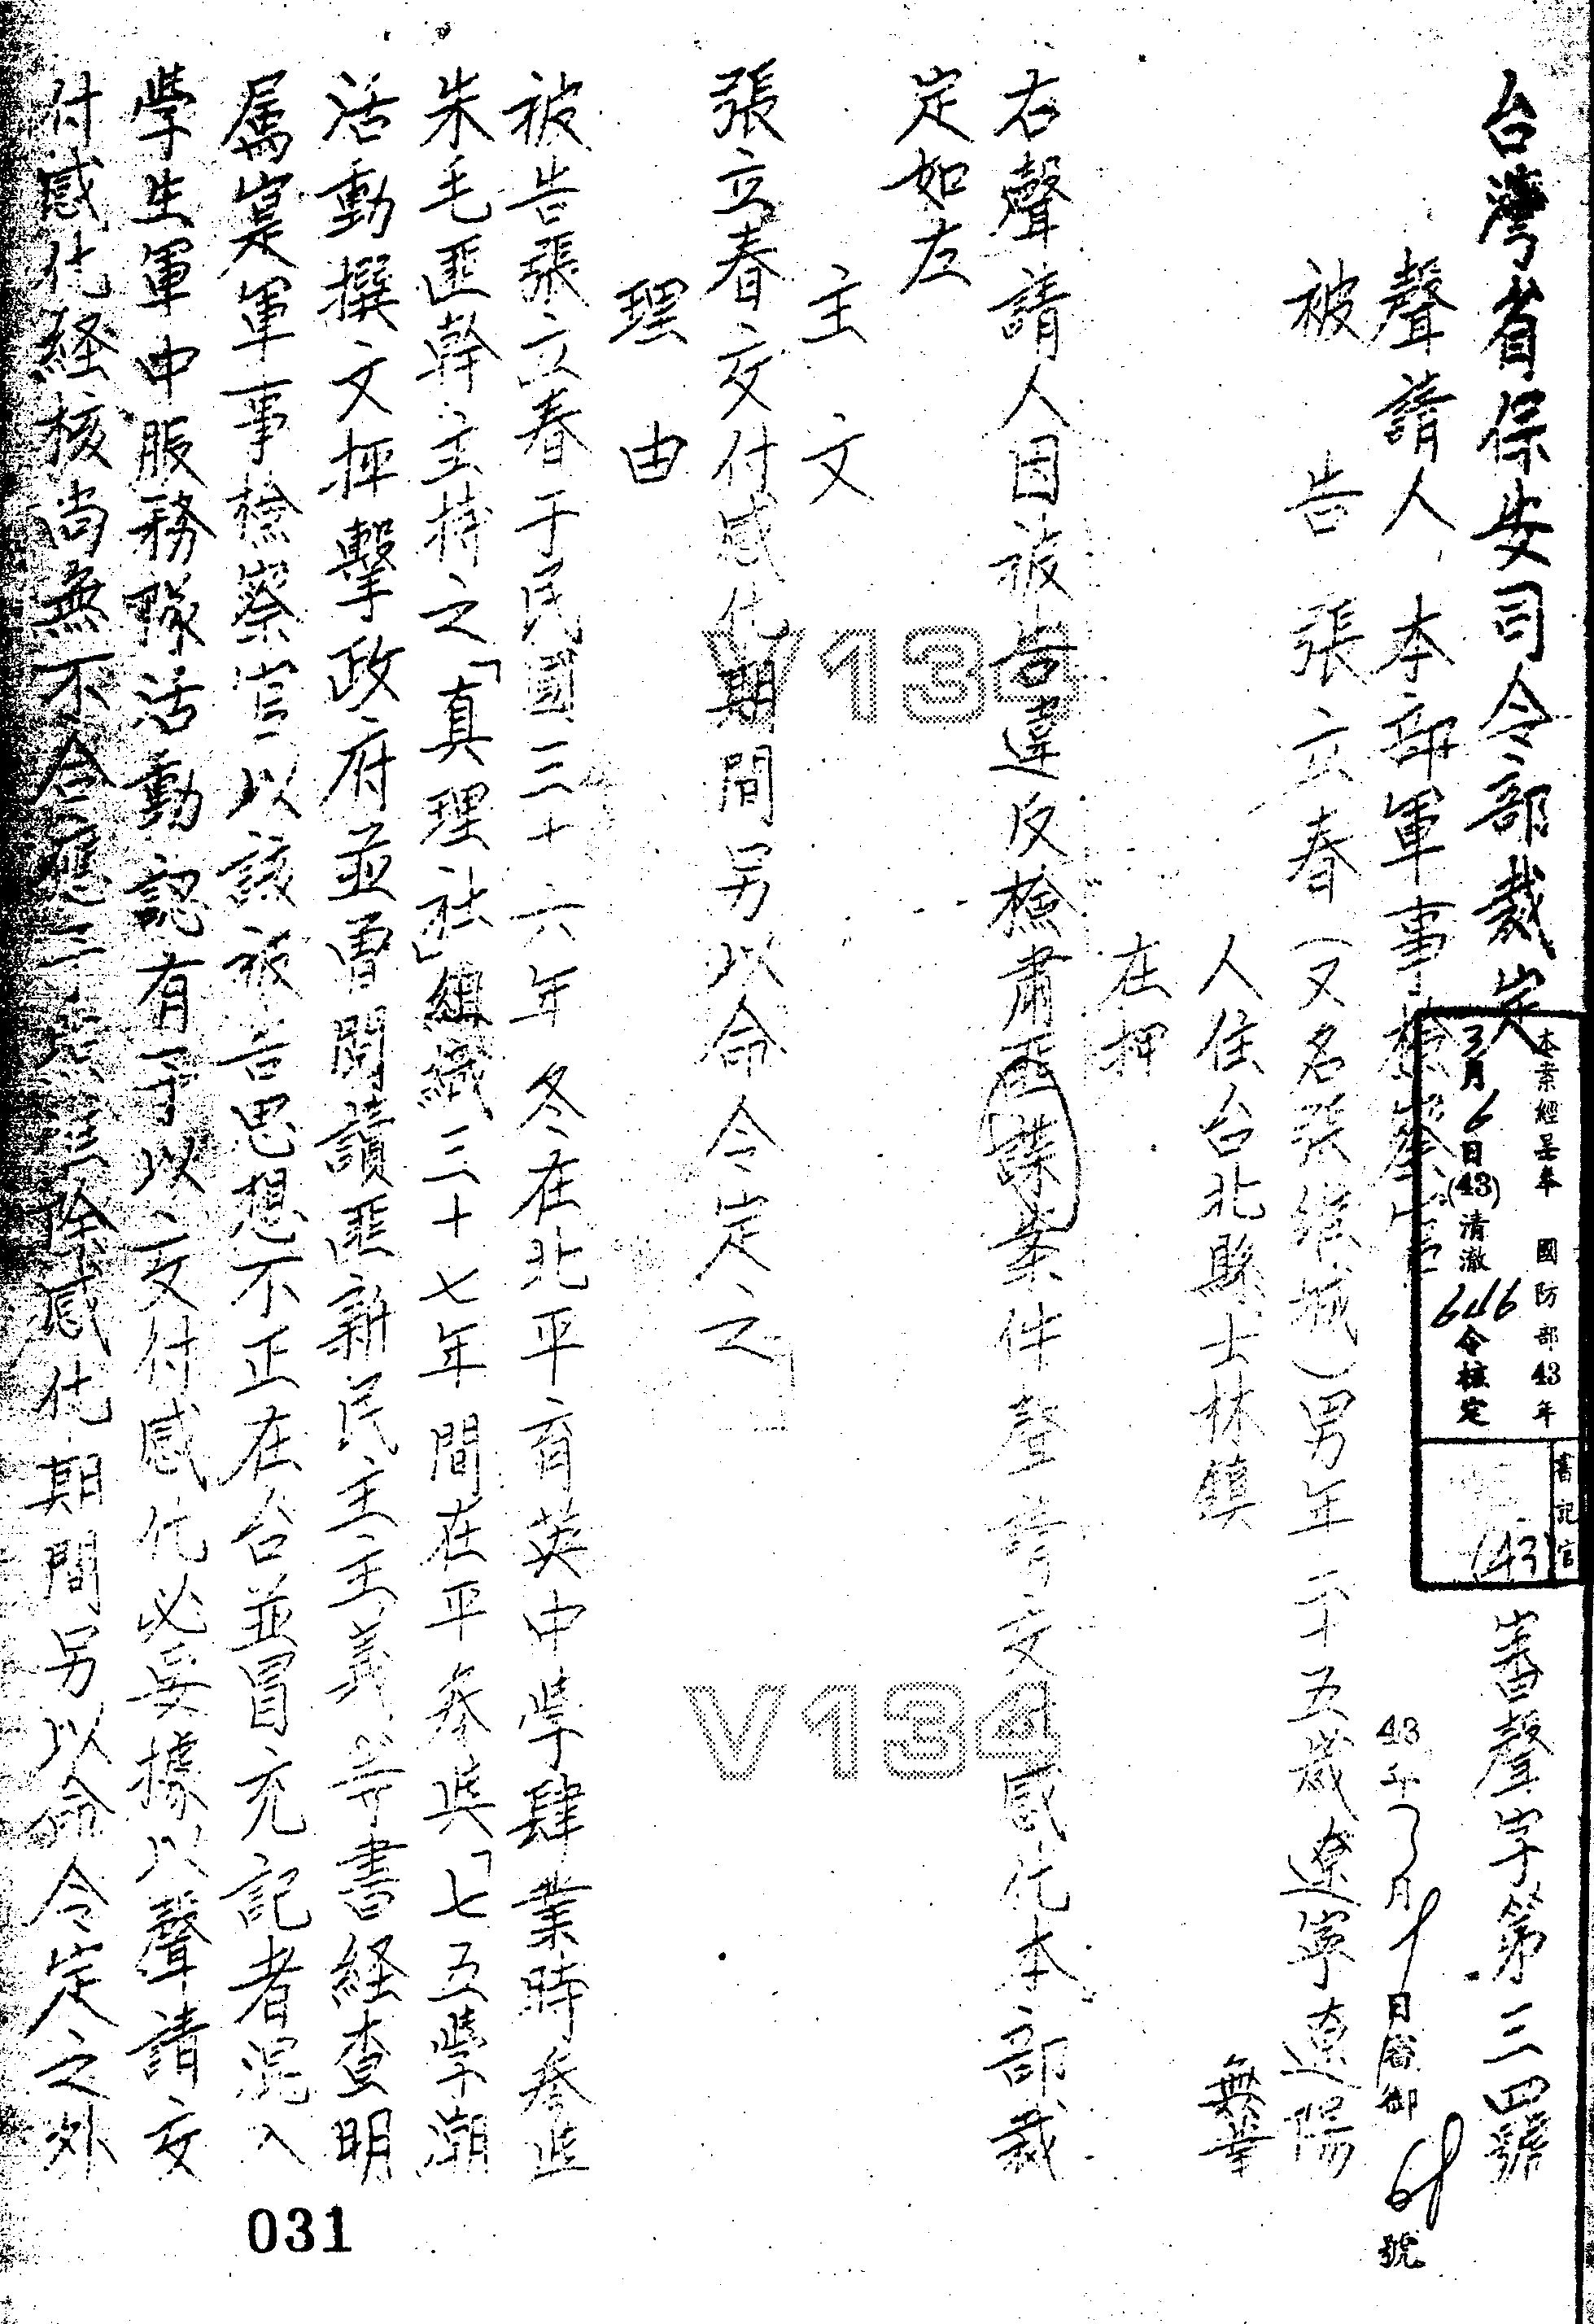 台灣省保安司令部裁定
審聲字第三四號
本案經呈奉國防部43年
3月6日(43)清澈646令核定
書記官
(43)
43年
月
日審御
號
聲請人本部軍事檢察官
被告張立春(又名張維城)男年二十五歲遼寧遼陽
人住台北縣士林鎮
無業
在押
右聲請人因被告違反檢肅匪諜案件聲請交付感化本部裁
定如左
主文
張立春交付感化期間另以命令定之
理由
被告張立春于民國三十六年冬在北平育英中學肄業時參進
朱毛匪幹主持之「真理社」組織三十七年間在平參與「七五學潮
活動撰文抨擊政府並曾閱讀匪新民主主義等書経查明
属寔軍事檢察官以該被告思想不正在台並冒充記者混入
學生軍中服務隊活動認有予以交付感化必要據以聲請交
付感化経核尚無不合應予照准除感化期間另以命令定之外
V134
V134
031